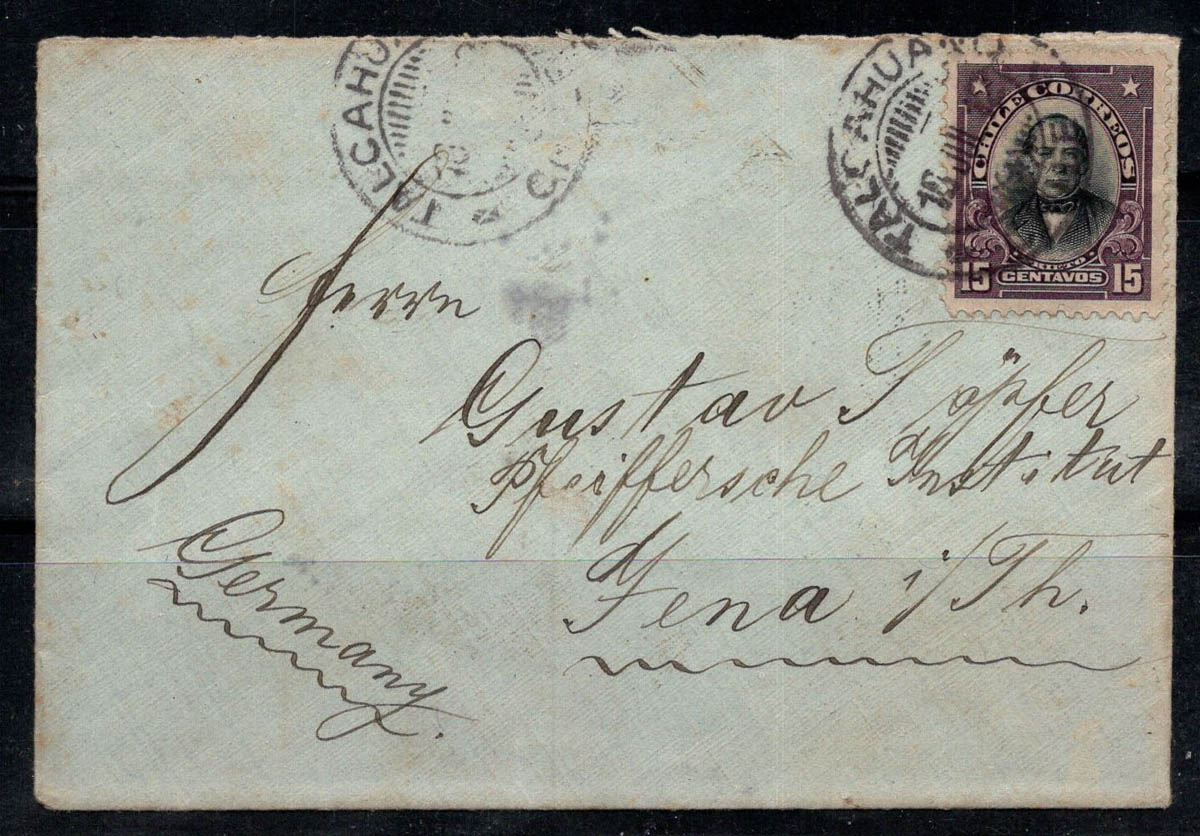 TALCAHU
TALCAHUANO
16 JUL
CHILE CORREOS
15 CENTAVOS 15
Herrn
Gustav Töpfer
Pfeiffersche Institut
Jena i/Th.
Germany.